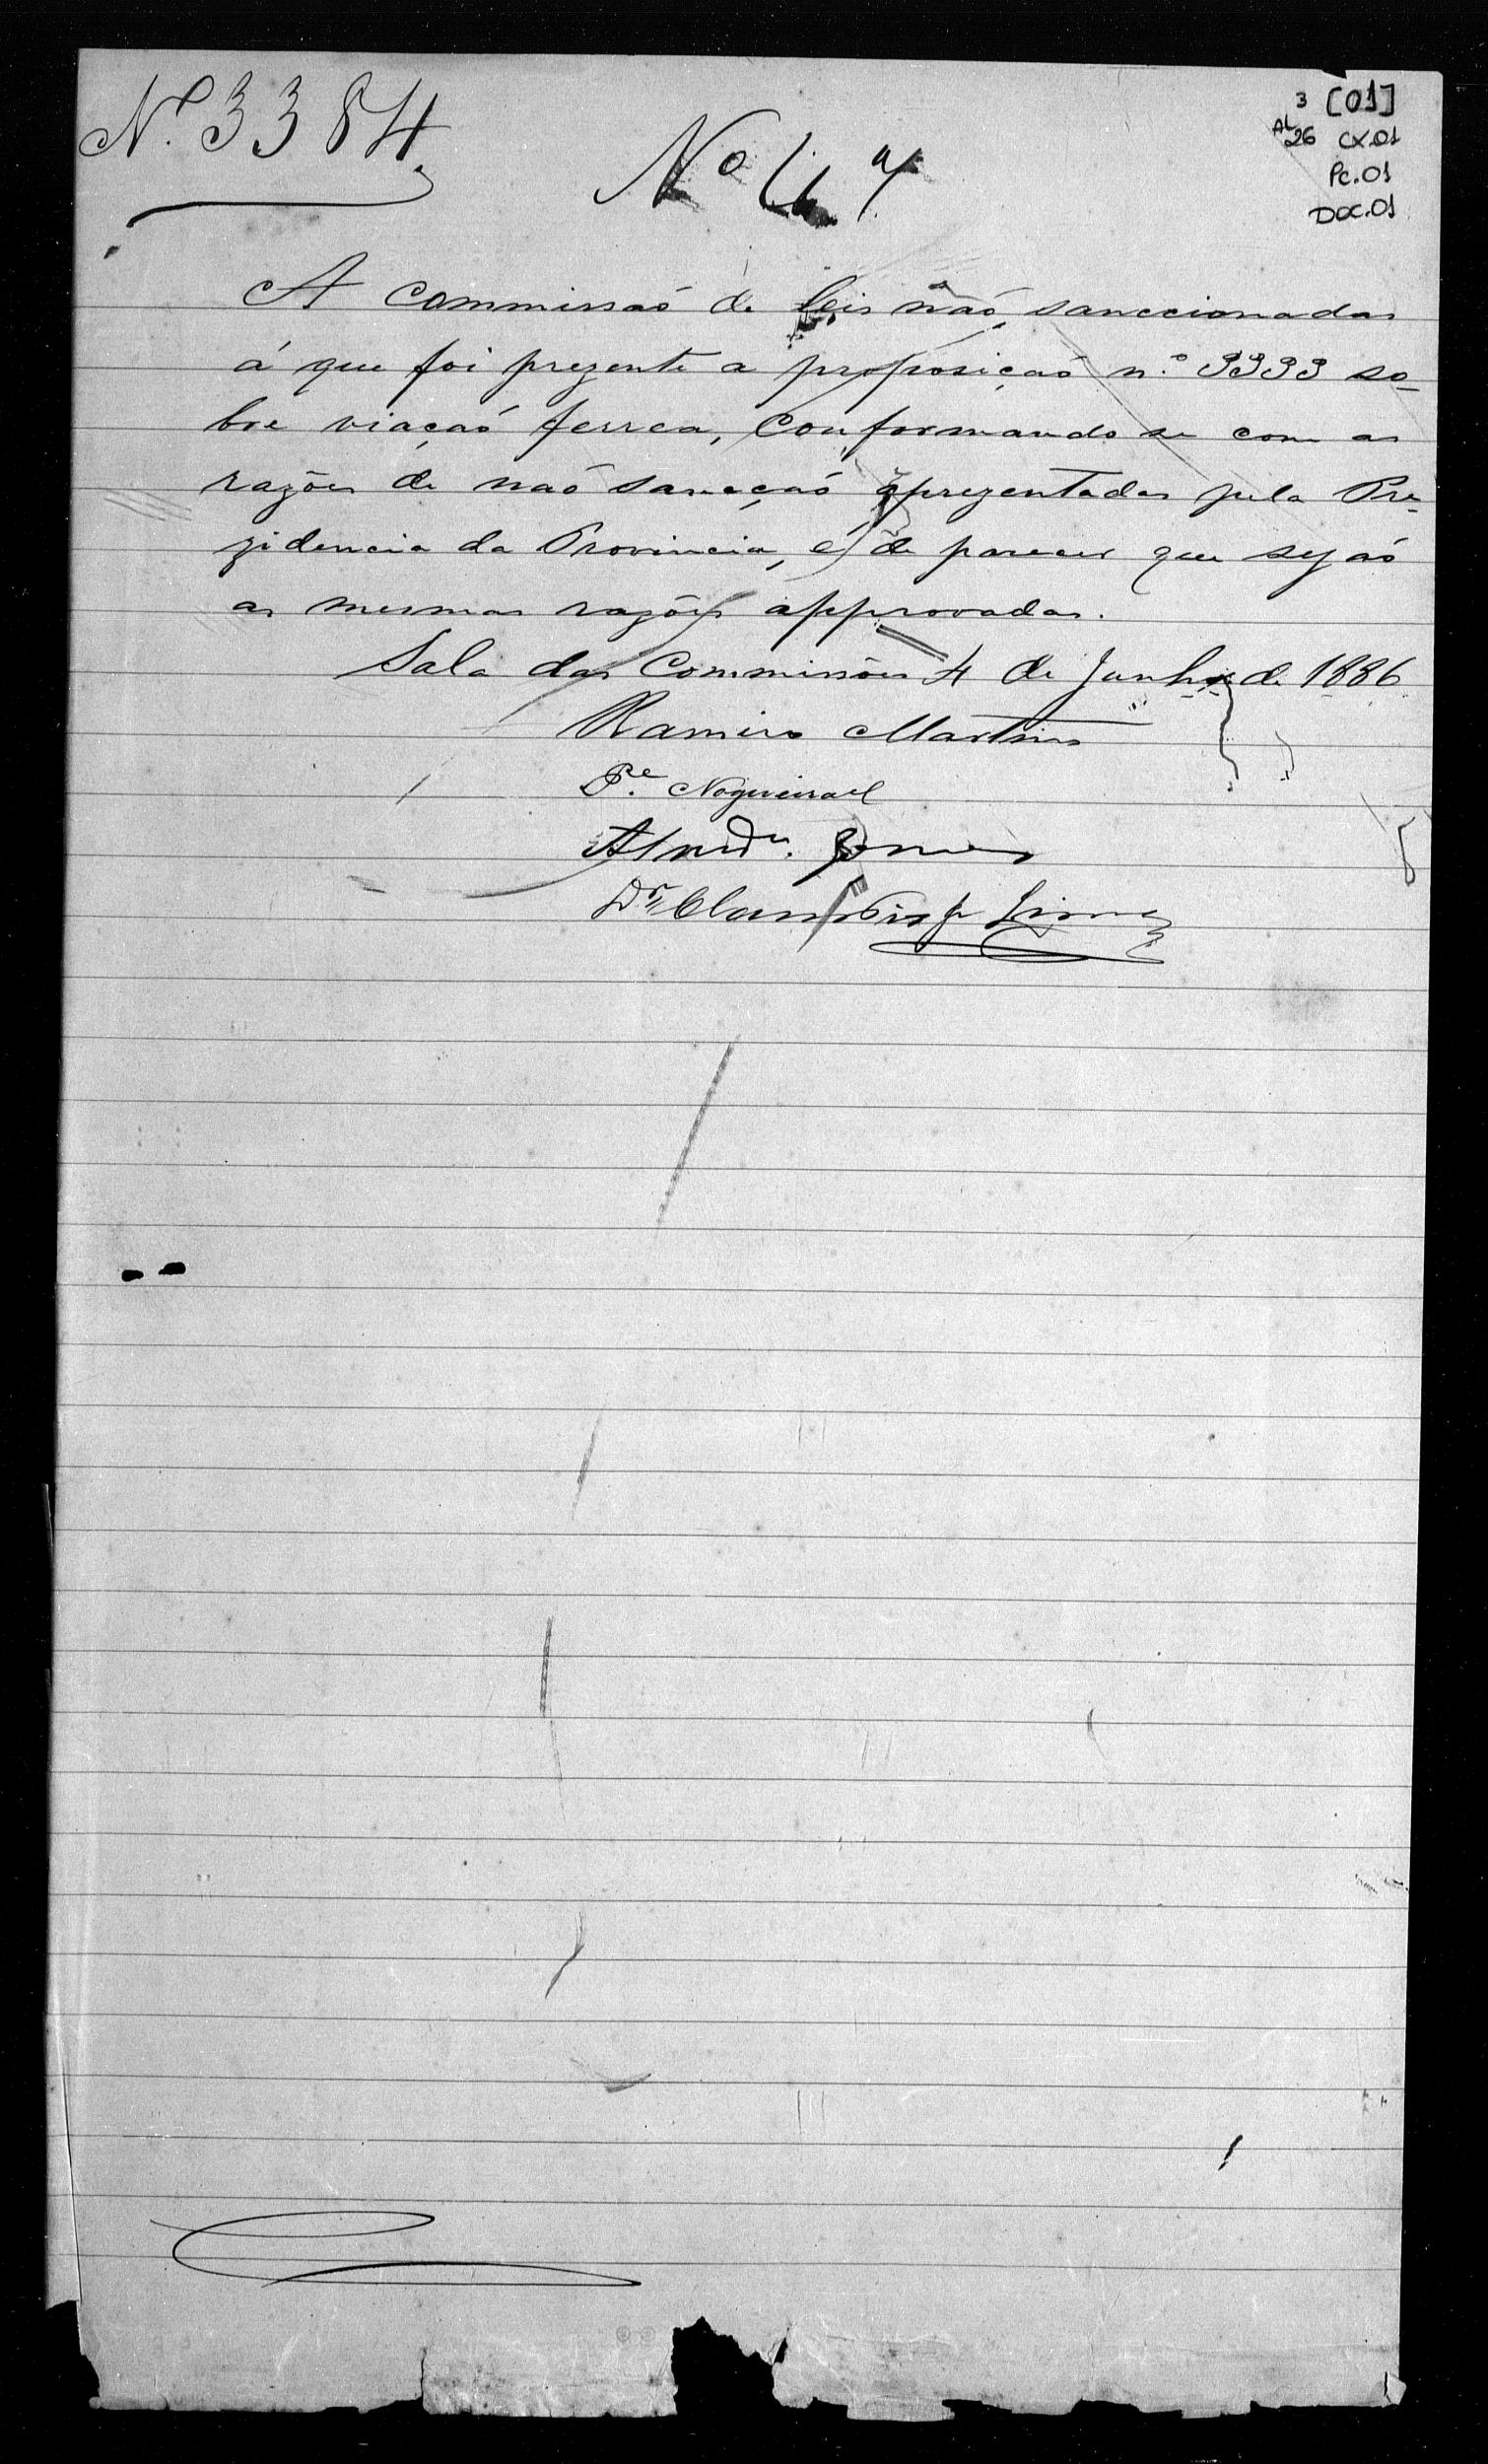 Nº 3384
3 [01]
AL 26 CX.01
Pc.01
DOC.01
Nº
A Commissaõ de leis naõ sanccionadas
á que foi prezente a proposiçaõ n.º 3333 so-
bre viaçaõ ferrea, Conformando se com as
razões de naõ sancçaõ aprezentadas pela Pre-
zidencia da Provincia, é de parecer que sejaõ
as mesmas razões approvadas.
Sala das Commissões 4 de Junho de 1886
Ramiro Martins
Pe. Nogueira
Dr.